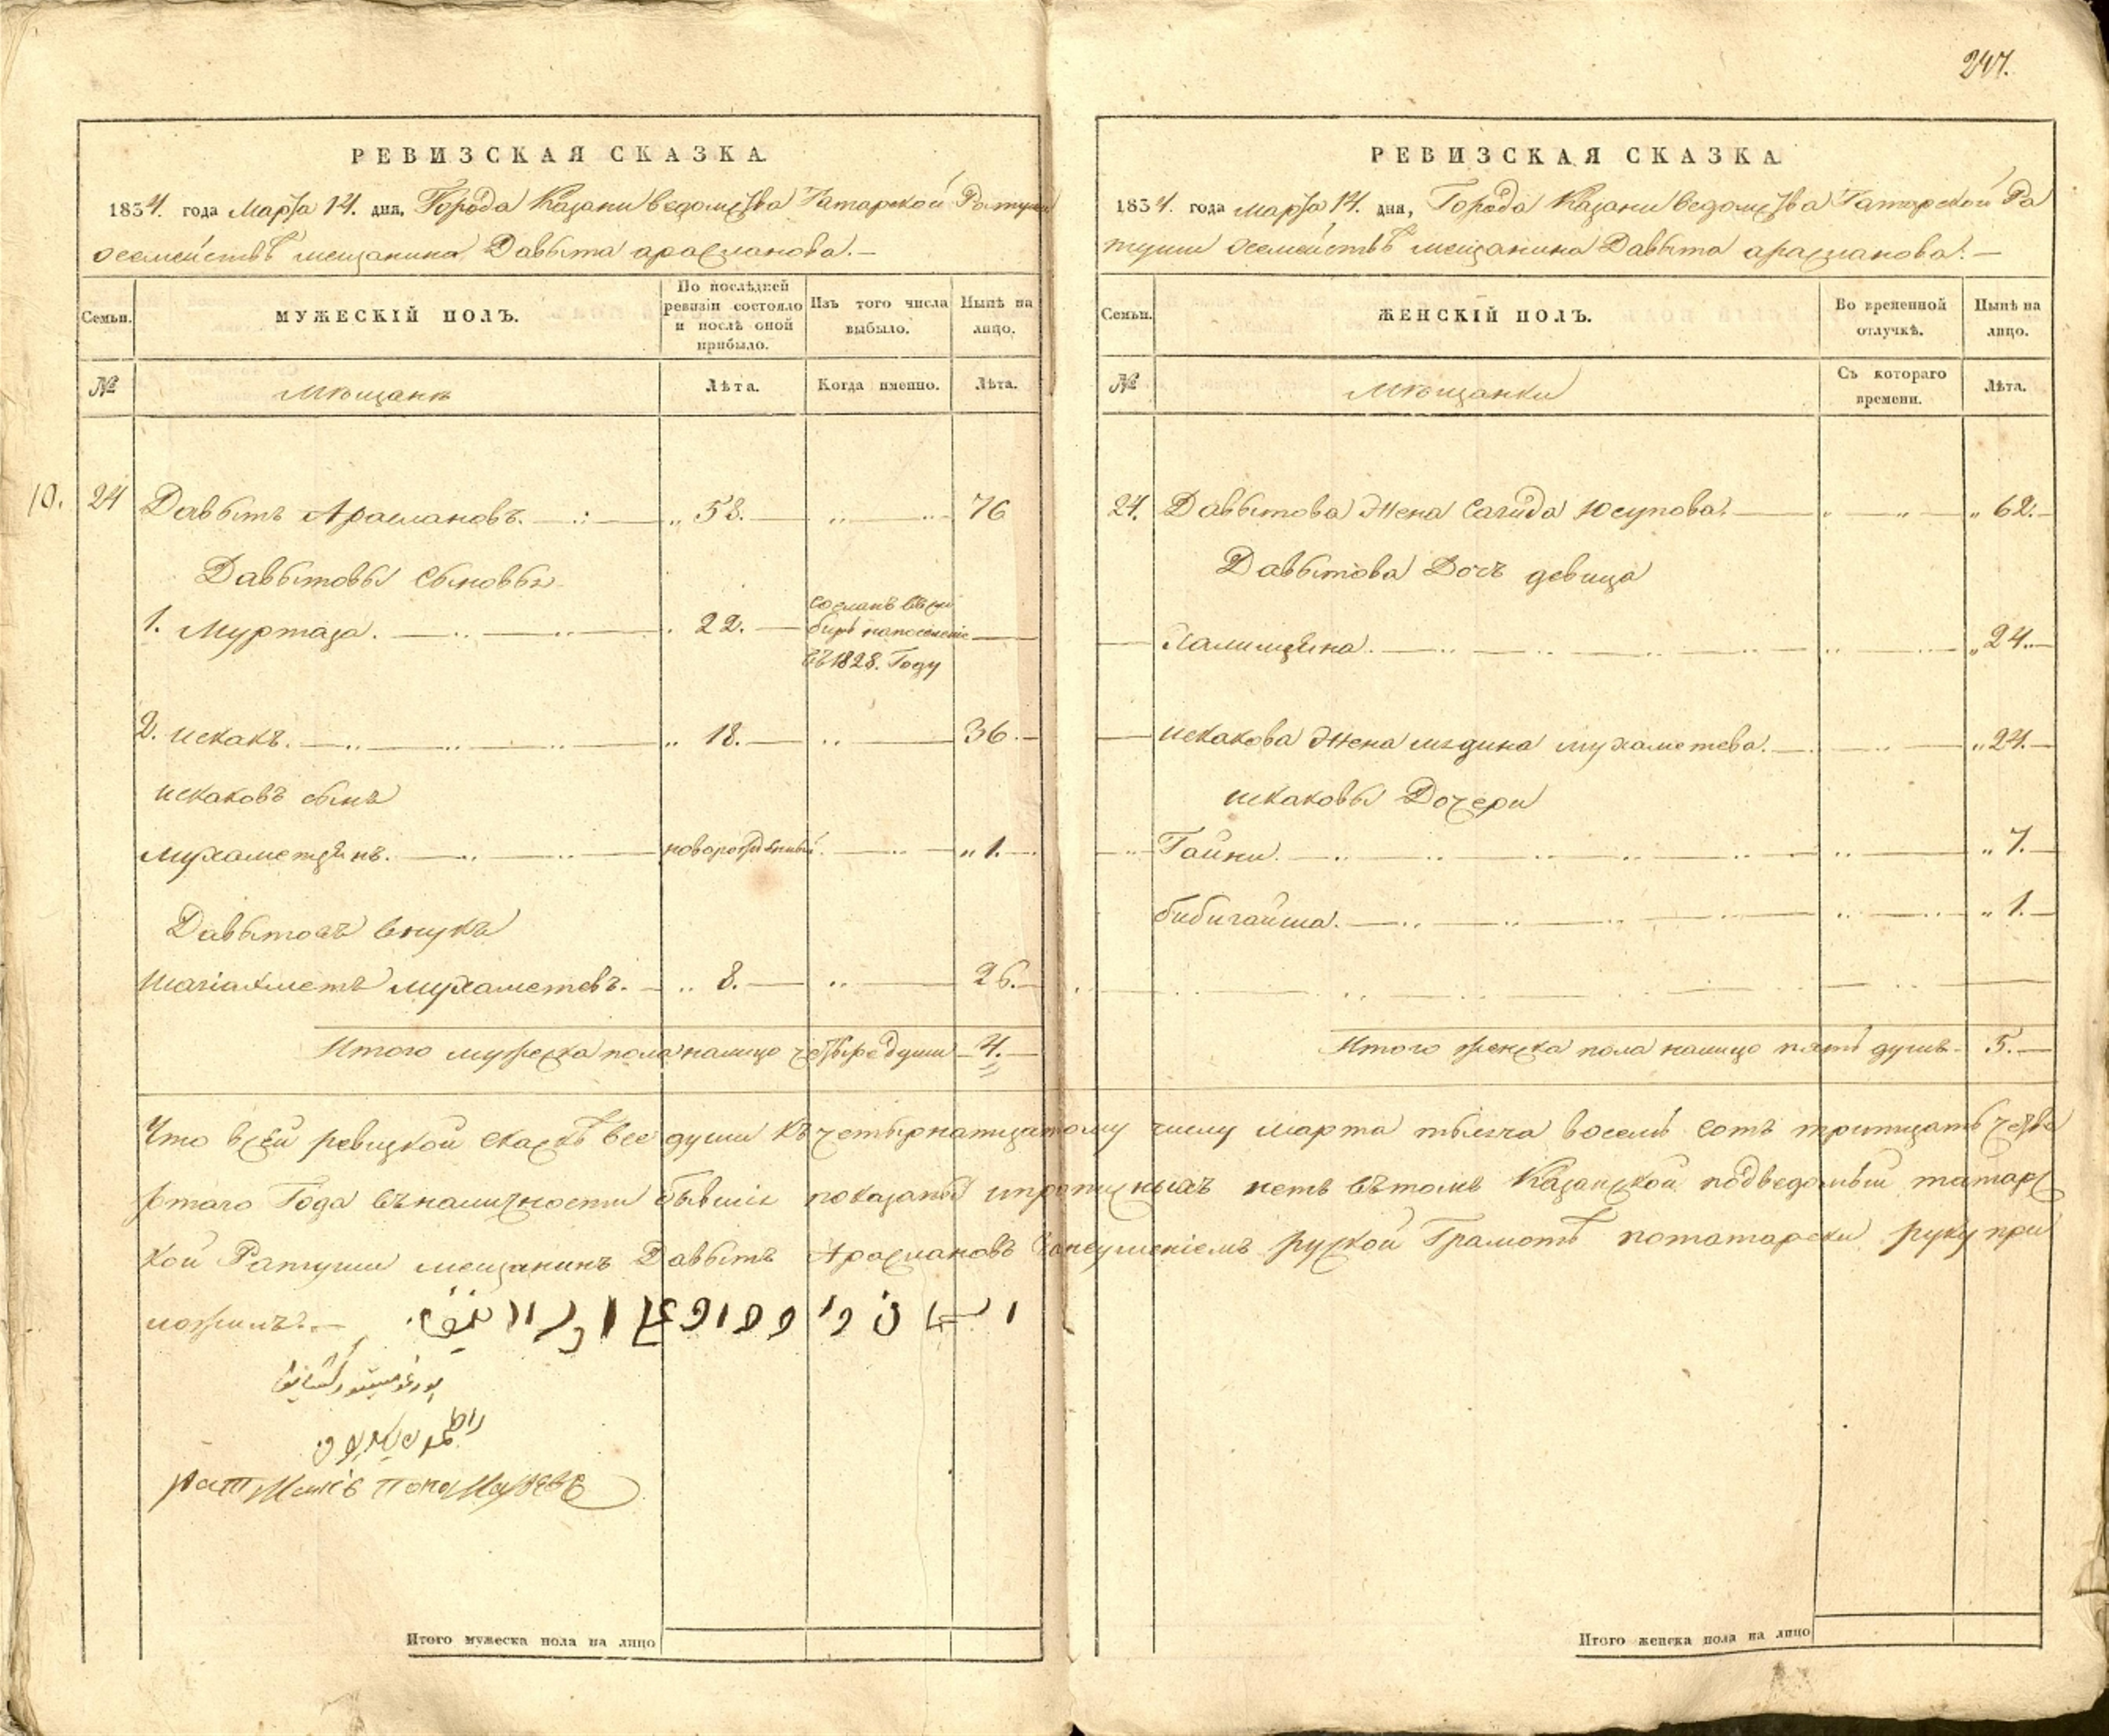 247.
РЕВИЗСКАЯ СКАЗКА.
1834. года Марта 14. дня, Города Казани ведомства Татарской Ратуши
осемействѣ мещанина Давыта арасланова. —
Семьи.
МУЖЕСКІЙ ПОЛЪ.
По послѣдней ревизіи состояло и послѣ оной прибыло.
Изъ того числа выбыло.
Нынѣ на лицо.
№
Мѣщанъ
Лѣта.
Когда именно.
Лѣта.
10. 24 Давытъ Араслановъ. 58. 76
Давытовы Сыновья
1. Муртаза. 22. сосланъ въ сибирь напоселеніе въ 1828. Году
2. искакъ. 18. 36.
искаковъ сынъ
мухаметзянъ. новорожденный. 1.
Давытовъ внукъ
шагіахметъ мухаметевъ. 8. 26.
Итого мужеска пола налицо четыре души 4.
РЕВИЗСКАЯ СКАЗКА.
1834. года марта 14. дня, Города Казани ведомства Татарской Ра
туши осемействѣ мещанина Давыта арасланова. —
Семьи.
ЖЕНСКІЙ ПОЛЪ.
Во временной отлучкѣ.
Нынѣ на лицо.
№
Мѣщанки
Съ котораго времени.
Лѣта.
24. Давытова Жена Сагида Юсупова. 62.
Давытова Дочь девица
24.
искакова Жена мядина мухаметева. 24.
искаковы Дочери
Гайни. 7.
бибигайша. 1.
Итого женска пола налицо пять душъ 5.
Что всей ревизкой сказкѣ все души къ четырнатцатому числу марта тысяча восемь сотъ тритцать четве
ртаго Года въналичности бывшіе показаны ипрописныхъ нетъ вътомъ Казанской подведомый татарс
кой Ратуши мещанинъ Давытъ Араслановъ занеумѣніемъ руской Грамотѣ потатарски руку при
ложилъ. —
ратманъ Пономаревъ
Итого мужеска пола на лицо
Итого женска пола на лицо